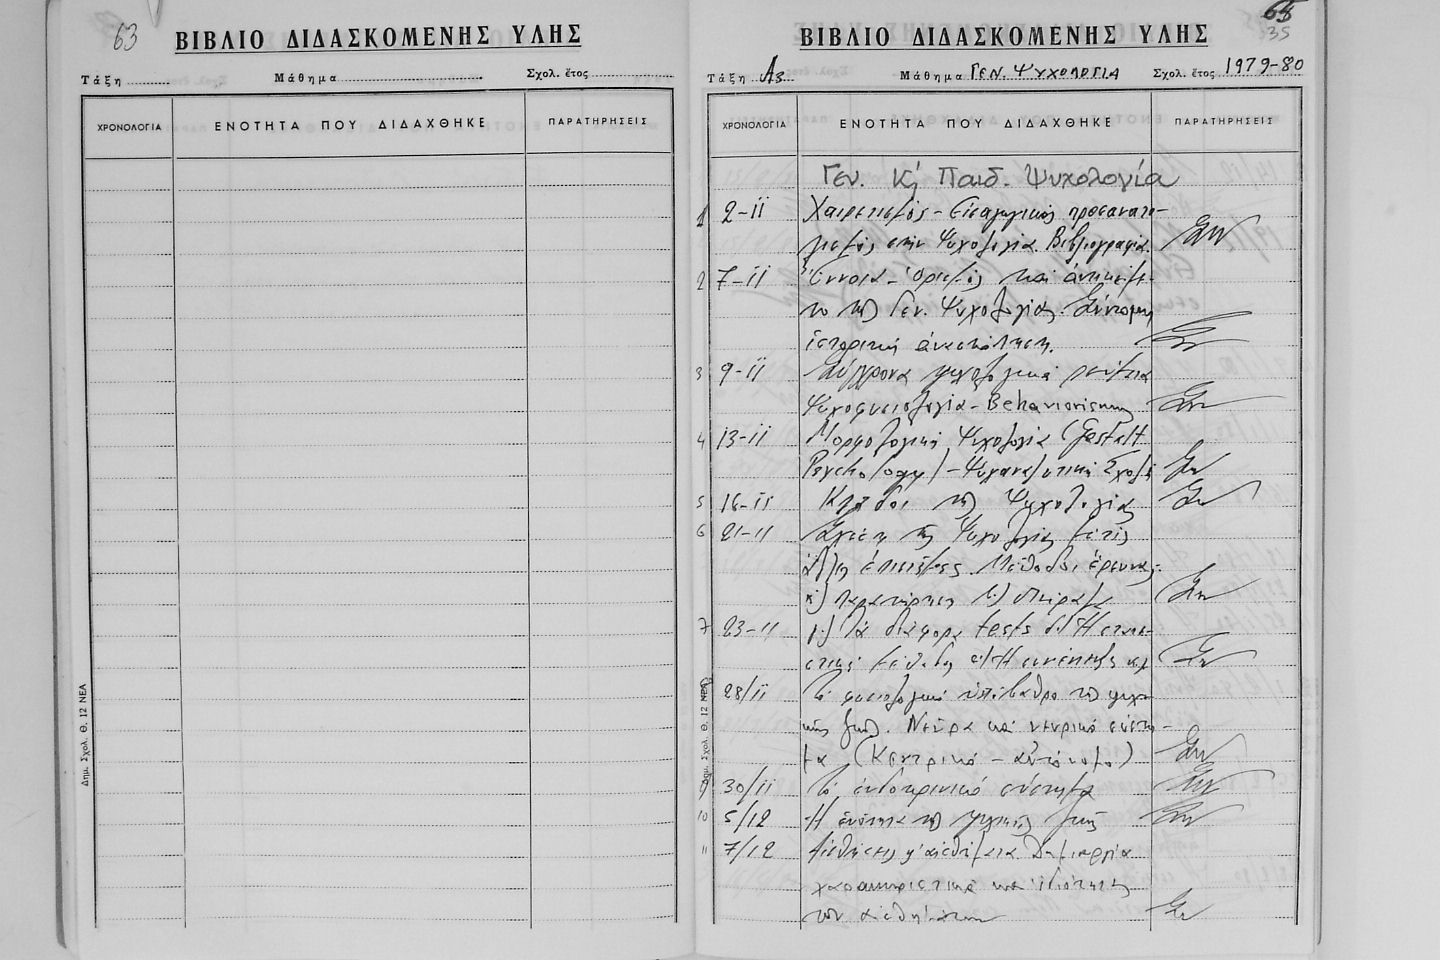 63
ΒΙΒΛΙΟ ΔΙΔΑΣΚΟΜΕΝΗΣ ΥΛΗΣ
Τάξη Μάθημα Σχολ. ἔτος
ΧΡΟΝΟΛΟΓΙΑ ΕΝΟΤΗΤΑ ΠΟΥ ΔΙΔΑΧΘΗΚΕ ΠΑΡΑΤΗΡΗΣΕΙΣ
Δημ. Σχολ. Θ. 12 ΝΕΑ
35
ΒΙΒΛΙΟ ΔΙΔΑΣΚΟΜΕΝΗΣ ΥΛΗΣ
Τάξη Α3 Μάθημα ΓΕΝ. ΨΥΧΟΛΟΓΙΑ Σχολ. ἔτος 1979-80
ΧΡΟΝΟΛΟΓΙΑ ΕΝΟΤΗΤΑ ΠΟΥ ΔΙΔΑΧΘΗΚΕ ΠΑΡΑΤΗΡΗΣΕΙΣ
Γεν. κ' Παιδ. Ψυχολογία
1 2-11 Χαιρετισμός - Εἰσαγωγικός προσανατο-
λισμός στήν Ψυχολογία. Βιβλιογραφία.
2 7-11 Ἔννοια - ὁρισμός καί ἀντικείμε-
νο τῆς Γεν. Ψυχολογίας. Σύντομη
ἱστορική ἀνασκόπηση.
3 9-11 Σύγχρονα ψυχολογικά ρεύματα
Ψυχοφυσιολογία - Behaviorismus
4 13-11 Μορφολογική Ψυχολογία (Gestalt
Psychology) - Ψυχαναλυτική Σχολή
5 16-11 Κλάδοι τῆς Ψυχολογίας
6 21-11 Σχέση τῆς Ψυχολογίας μέ τίς
ἄλλες ἐπιστῆμες. Μέθοδοι ἔρευνας.
α) παρατήρηση β) πείραμα
7 23-11 γ) Τά διάφορα tests δ) Ἡ στατι-
στική μέθοδος ε) Ἡ συνέντευξη κλ
8 28/11 Τό φυσιολογικό ὑπόβαθρο τῆς ψυχι-
κῆς ζωῆς. Νεῦρα καί νευρικό σύστη-
μα (Κεντρικό - αὐτόνομο)
9 30/11 Τό ἐνδοκρινικό σύστημα
10 5/12 Ἡ ἑνότητα τῆς ψυχικῆς ζωῆς
11 7/12 Αἰσθήσεις κ' αἰσθήματα
χαρακτηριστικά καί ἰδιότητες
τῶν αἰσθημάτων
Δημ. Σχολ. Θ. 12 ΝΕΑ